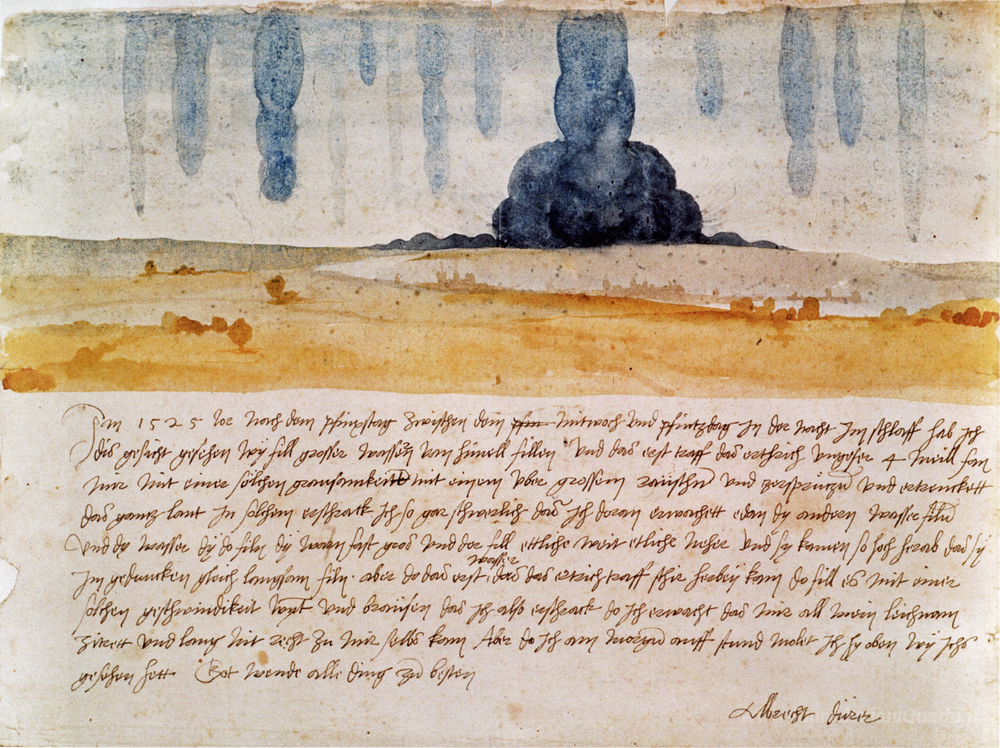 Im 1525 Jor noch dem pfinxstag zwischen dem pfin mitwoch und pfintzdag in der nacht im schlaff hab ich
dis gesicht gesehen wy fill grosser wassern vom himell fillen Und das erst traff das erthrich ungefer 4 meill fan
mir mit einer sölchen grausamkeitt mit einem uber grossem raüschn und zersprützn und ertrenckett
das gantz lant In sölchem erschrack ich so gar schwerlich das ich doran erwachett edan dy andern wasser filn
Und dy wasser dy do filn dy warn fast gros und der fill ettliche weit etliche neher und sy kamen so hoch herab das sy
im gedancken gleich langsam filn aber do das erst wasser das das ertrich traff schir herbey kam do fill es mit einer
sölchen geschwindikeit wynt und braüsen das ich also erschrack do ich erwacht das mir all mein leichnam
zitrett und lang nit recht zu mir selbs kam Aber do ich am morgn auff stund molet ich hy oben wy ichs
gesehen hett Got wende alle ding zu besten
Albrecht dürer